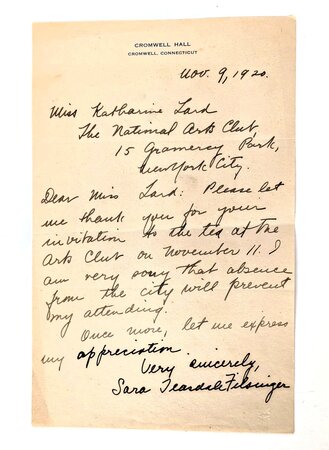 CROMWELL HALL
CROMWELL, CONNECTICUT
Nov. 9, 1920.
Miss Katharine Lard
The National Arts Club,
15 Gramercy Park,
New York City.
Dear Miss Lard: Please let
me thank you for your
invitation to the tea at the
Arts Club on November 11. I
am very sorry that absence
from the city will prevent
my attending.
Once more, let me express
my appreciation.
Very sincerely,
Sara Teasdale Filsinger